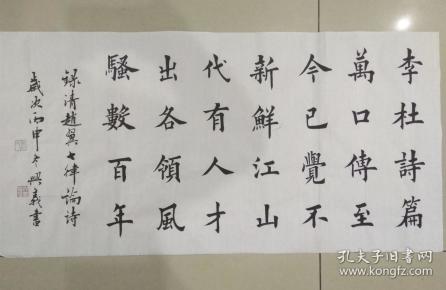 李杜詩篇
萬口傳至
今已覺不
新鮮江山
代有人才
出各領風
騷數百年
錄清趙翼七律論詩
歲次丙申冬興義書
孔夫子旧书网
www.kongfz.com